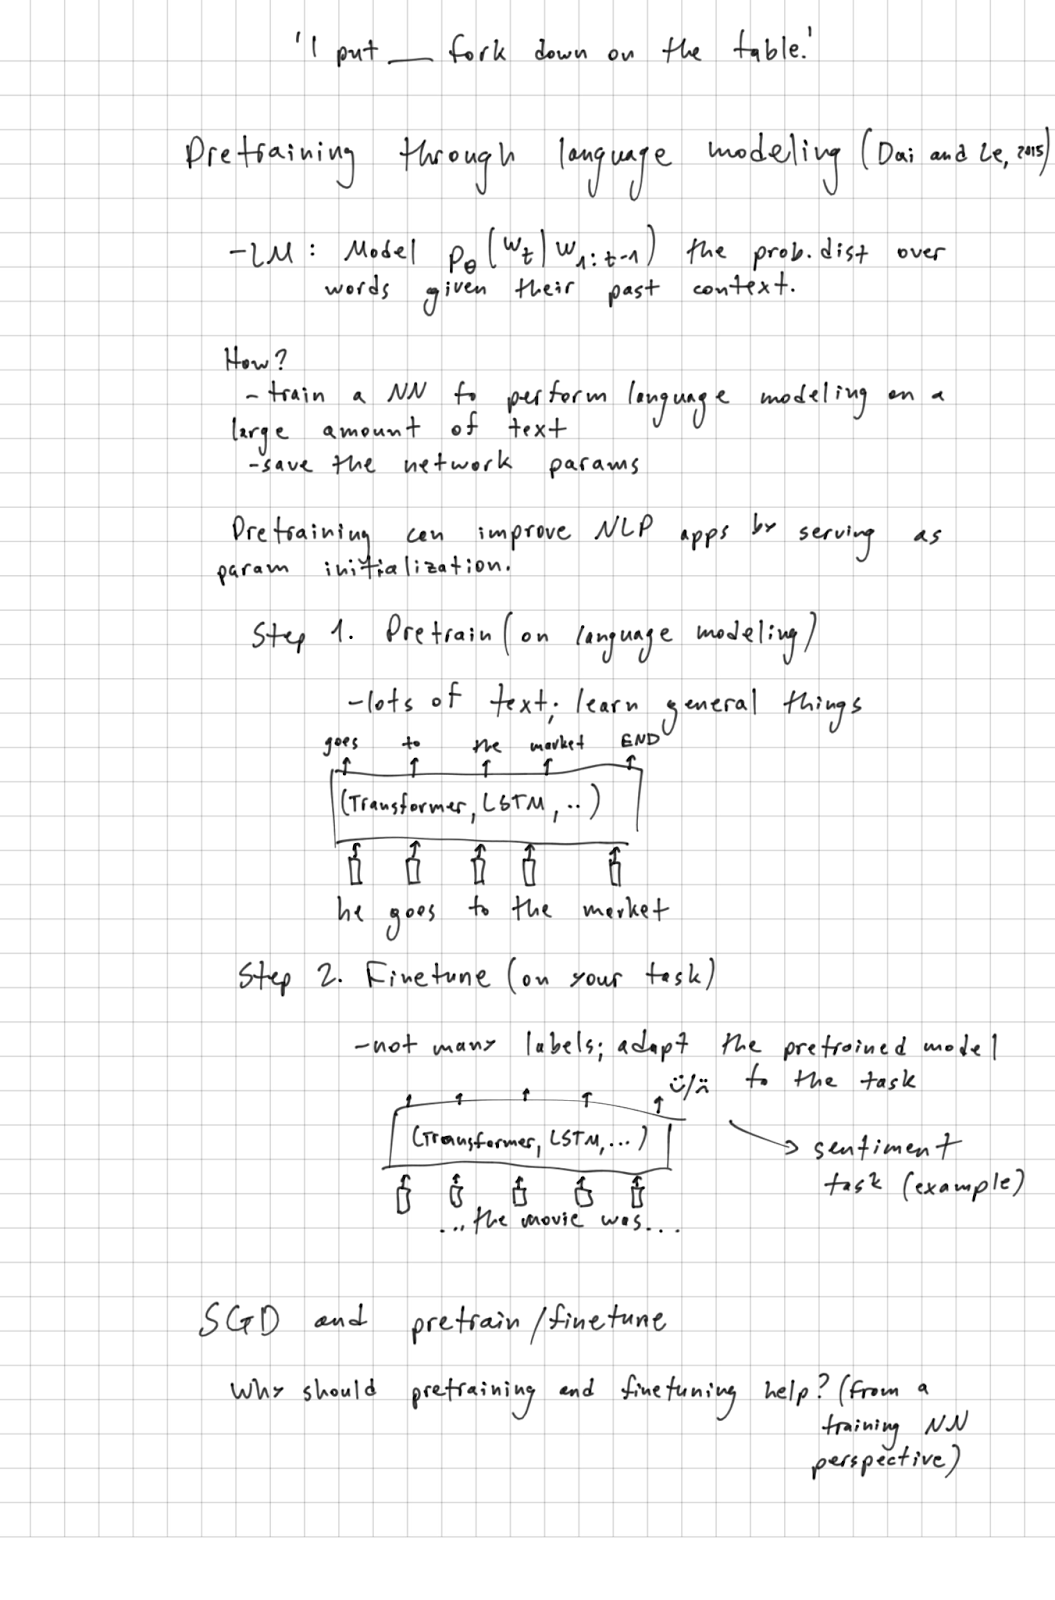 'I put __ fork down on the table.'
Pretraining through language modeling (Dai and Le, 2015)
-LM: Model pθ(wt|w1:t-1) the prob.dist over
words given their past context.
How?
-train a NN to perform language modeling on a
large amount of text
-save the network params
Pretraining can improve NLP apps by serving as
param initialization.
Step 1. Pretrain (on language modeling)
-lots of text; learn general things
goes to the market END
(Transformer, LSTM, ..)
he goes to the market
Step 2. Finetune (on your task)
-not many labels; adapt the pretrained model
☺/☹ to the task
(Transformer, LSTM, ...)
sentiment
task (example)
... the movie was...
SGD and pretrain/finetune
Why should pretraining and finetuning help? (from a
training NN
perspective)